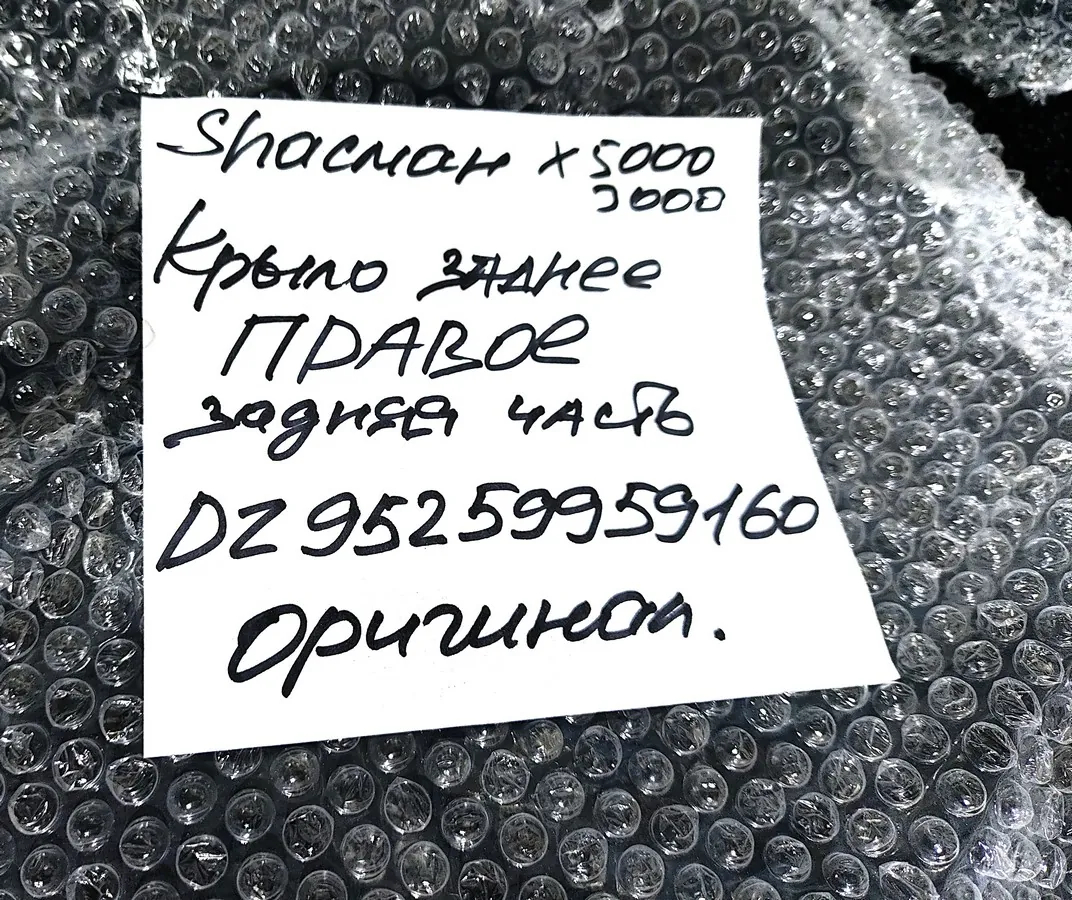 Shacман x 5000
3000
Крыло заднее
ПРАВОе
задняя часть
DZ95259959160
Оригинал.